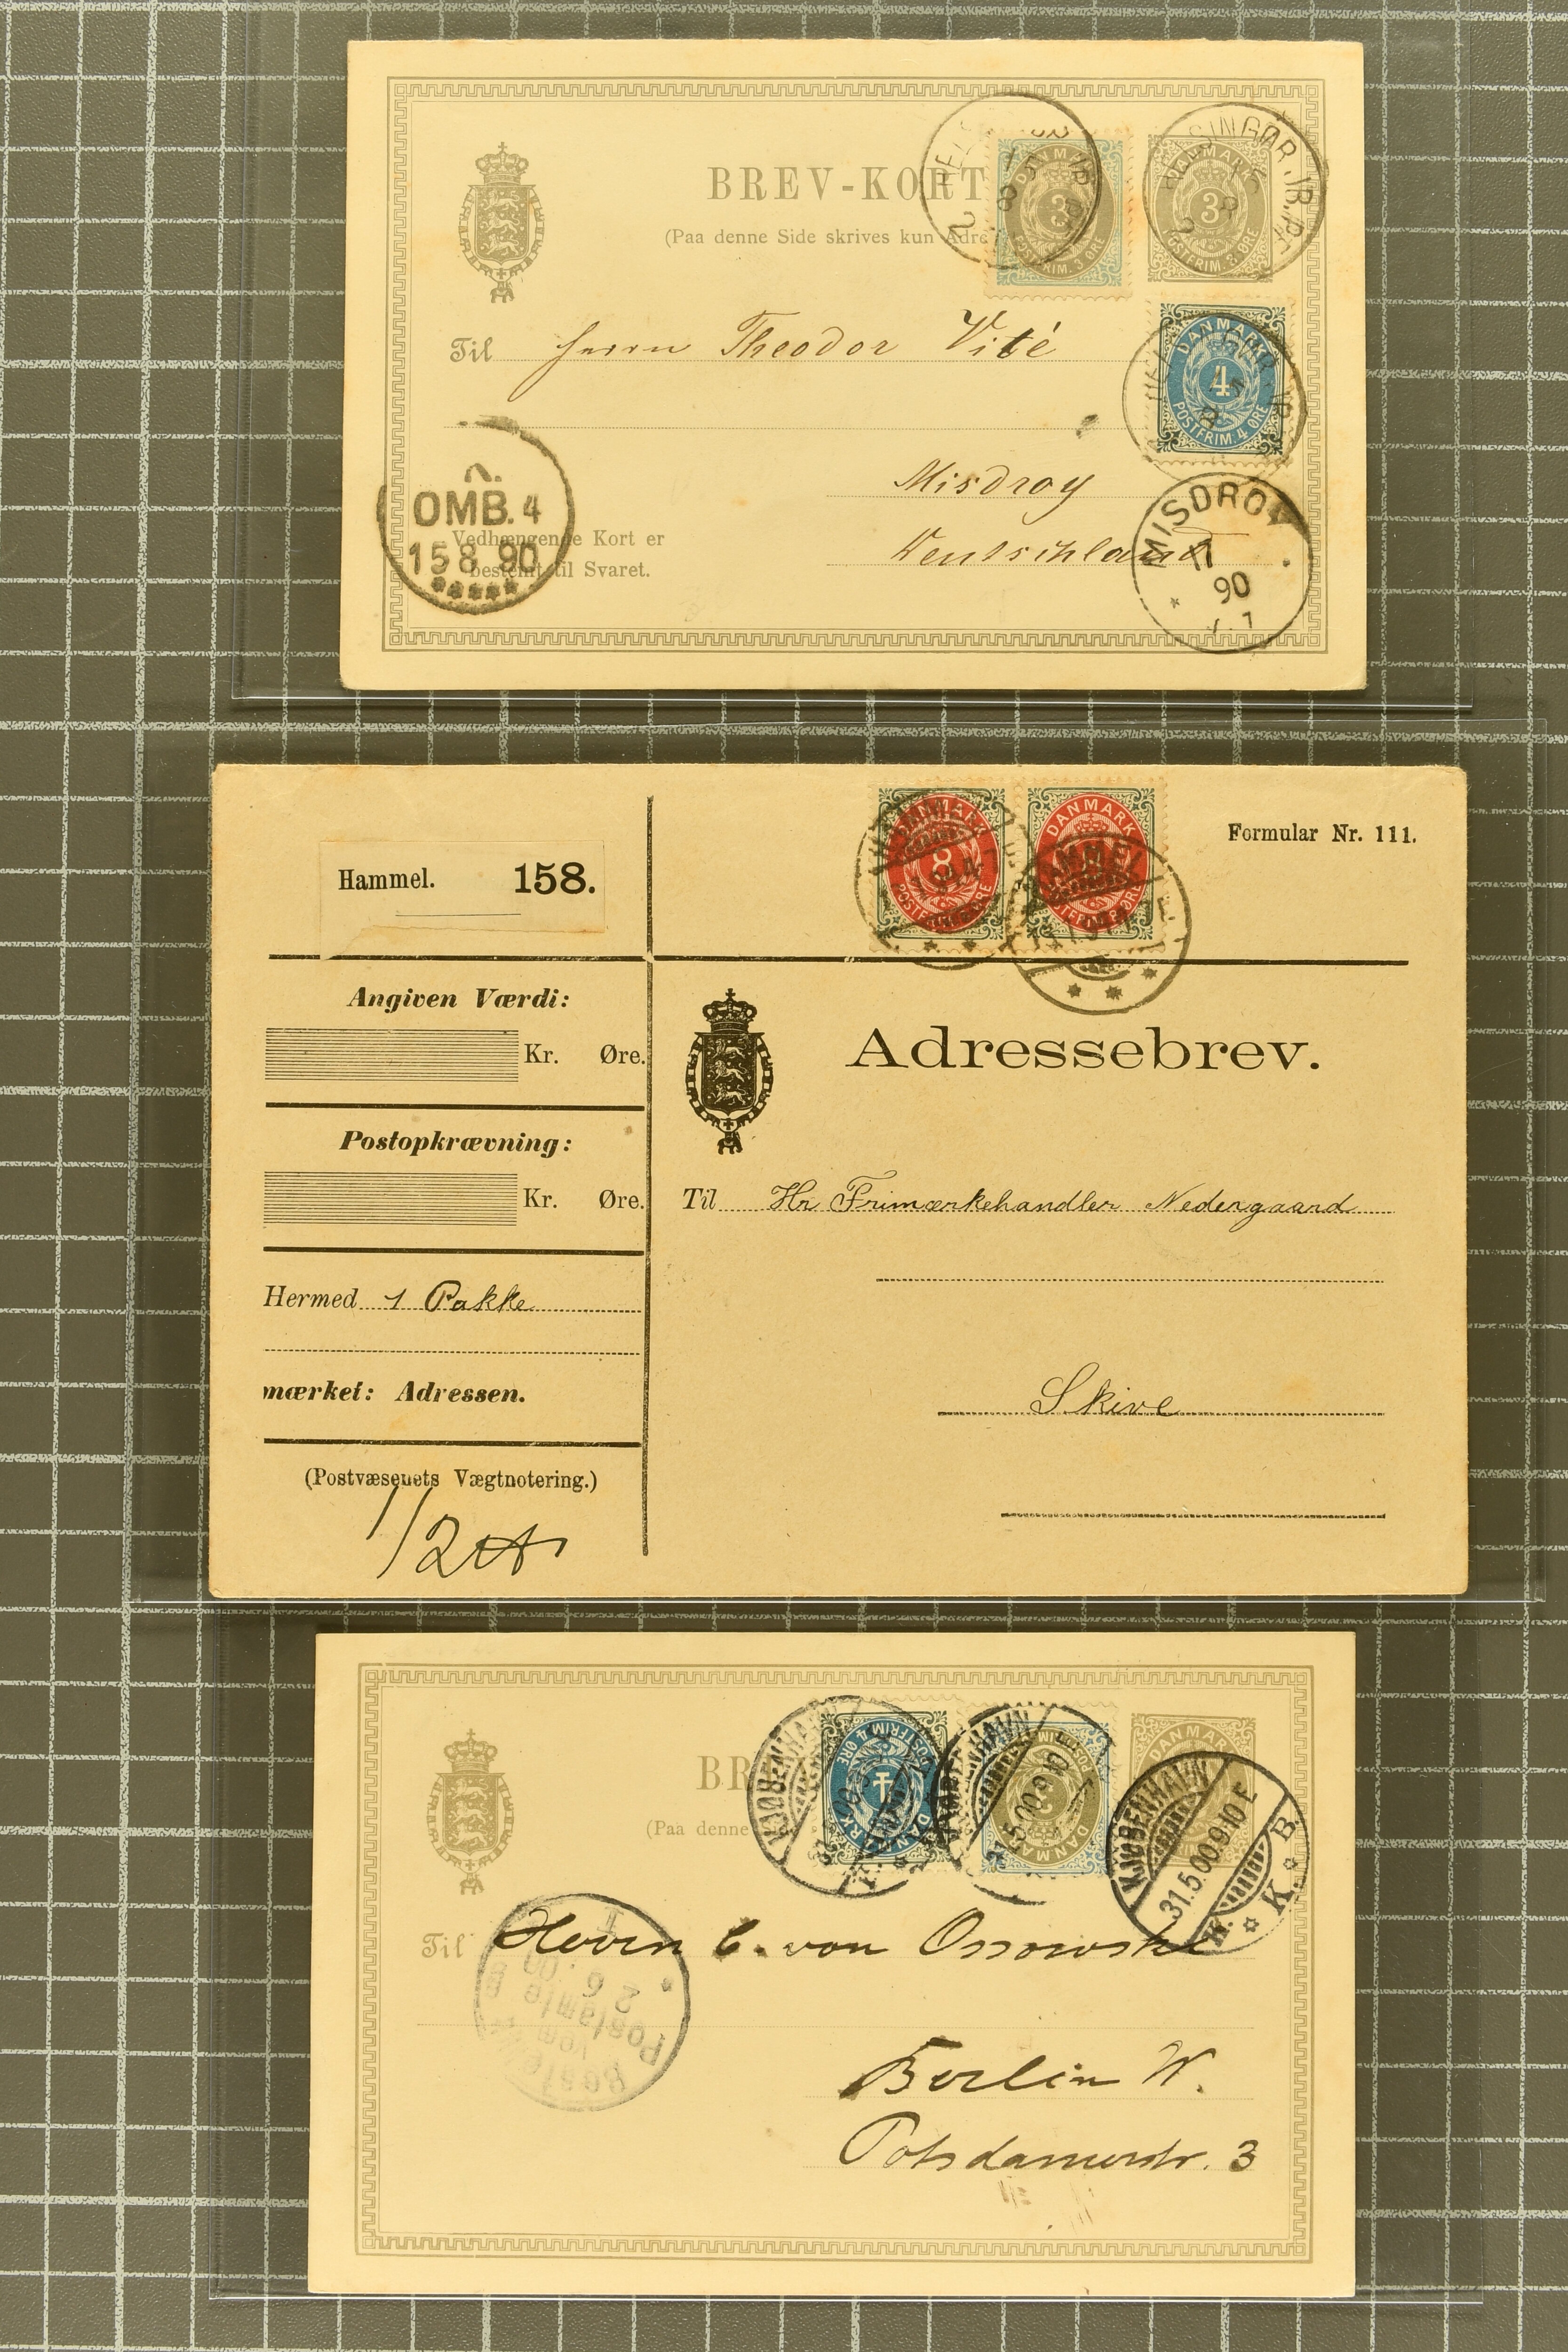 BREV-KORT
(Paa denne Side skrives kun Adre
DANMARK
3
POSTFRIM. 3 ØRE
DANMARK
3
POSTFRIM. 3 ØRE
HELSINGØR JB.PE.
Til Herrn Theodor Vité
DANMARK
4
POSTFRIM. 4 ØRE
Misdroy
Deutschland
OMB. 4
15 8 90
Vedhængende Kort er
bestemt til Svaret.
MISDROY
17
90
Hammel. 158.
DANMARK
8
POSTFRIM. 8 ØRE
DANMARK
POSTFRIM. 8 ØRE
HAMMEL
Formular Nr. 111.
Angiven Værdi:
Kr. Øre.
Adressebrev.
Postopkrævning:
Kr. Øre.
Til Hr Frimærkehandler Nedergaard
Hermed 1 Pakke
mærket: Adressen.
Skive
(Postvæsenets Vægtnotering.)
1/2
BR
(Paa denne
DANMARK
4
POSTFRIM. 4 ØRE
KJØBENHAVN
DANMARK
KJØBENHAVN
31.5.00.9-10
DANMARK
KJØBENHAVN
31.5.00.9-10 E
K. K. B.
Til Herrn C. von Ossowski
Bestellt
vom
Postamte 9
2 6 00
Berlin W.
Potsdamerstr. 3